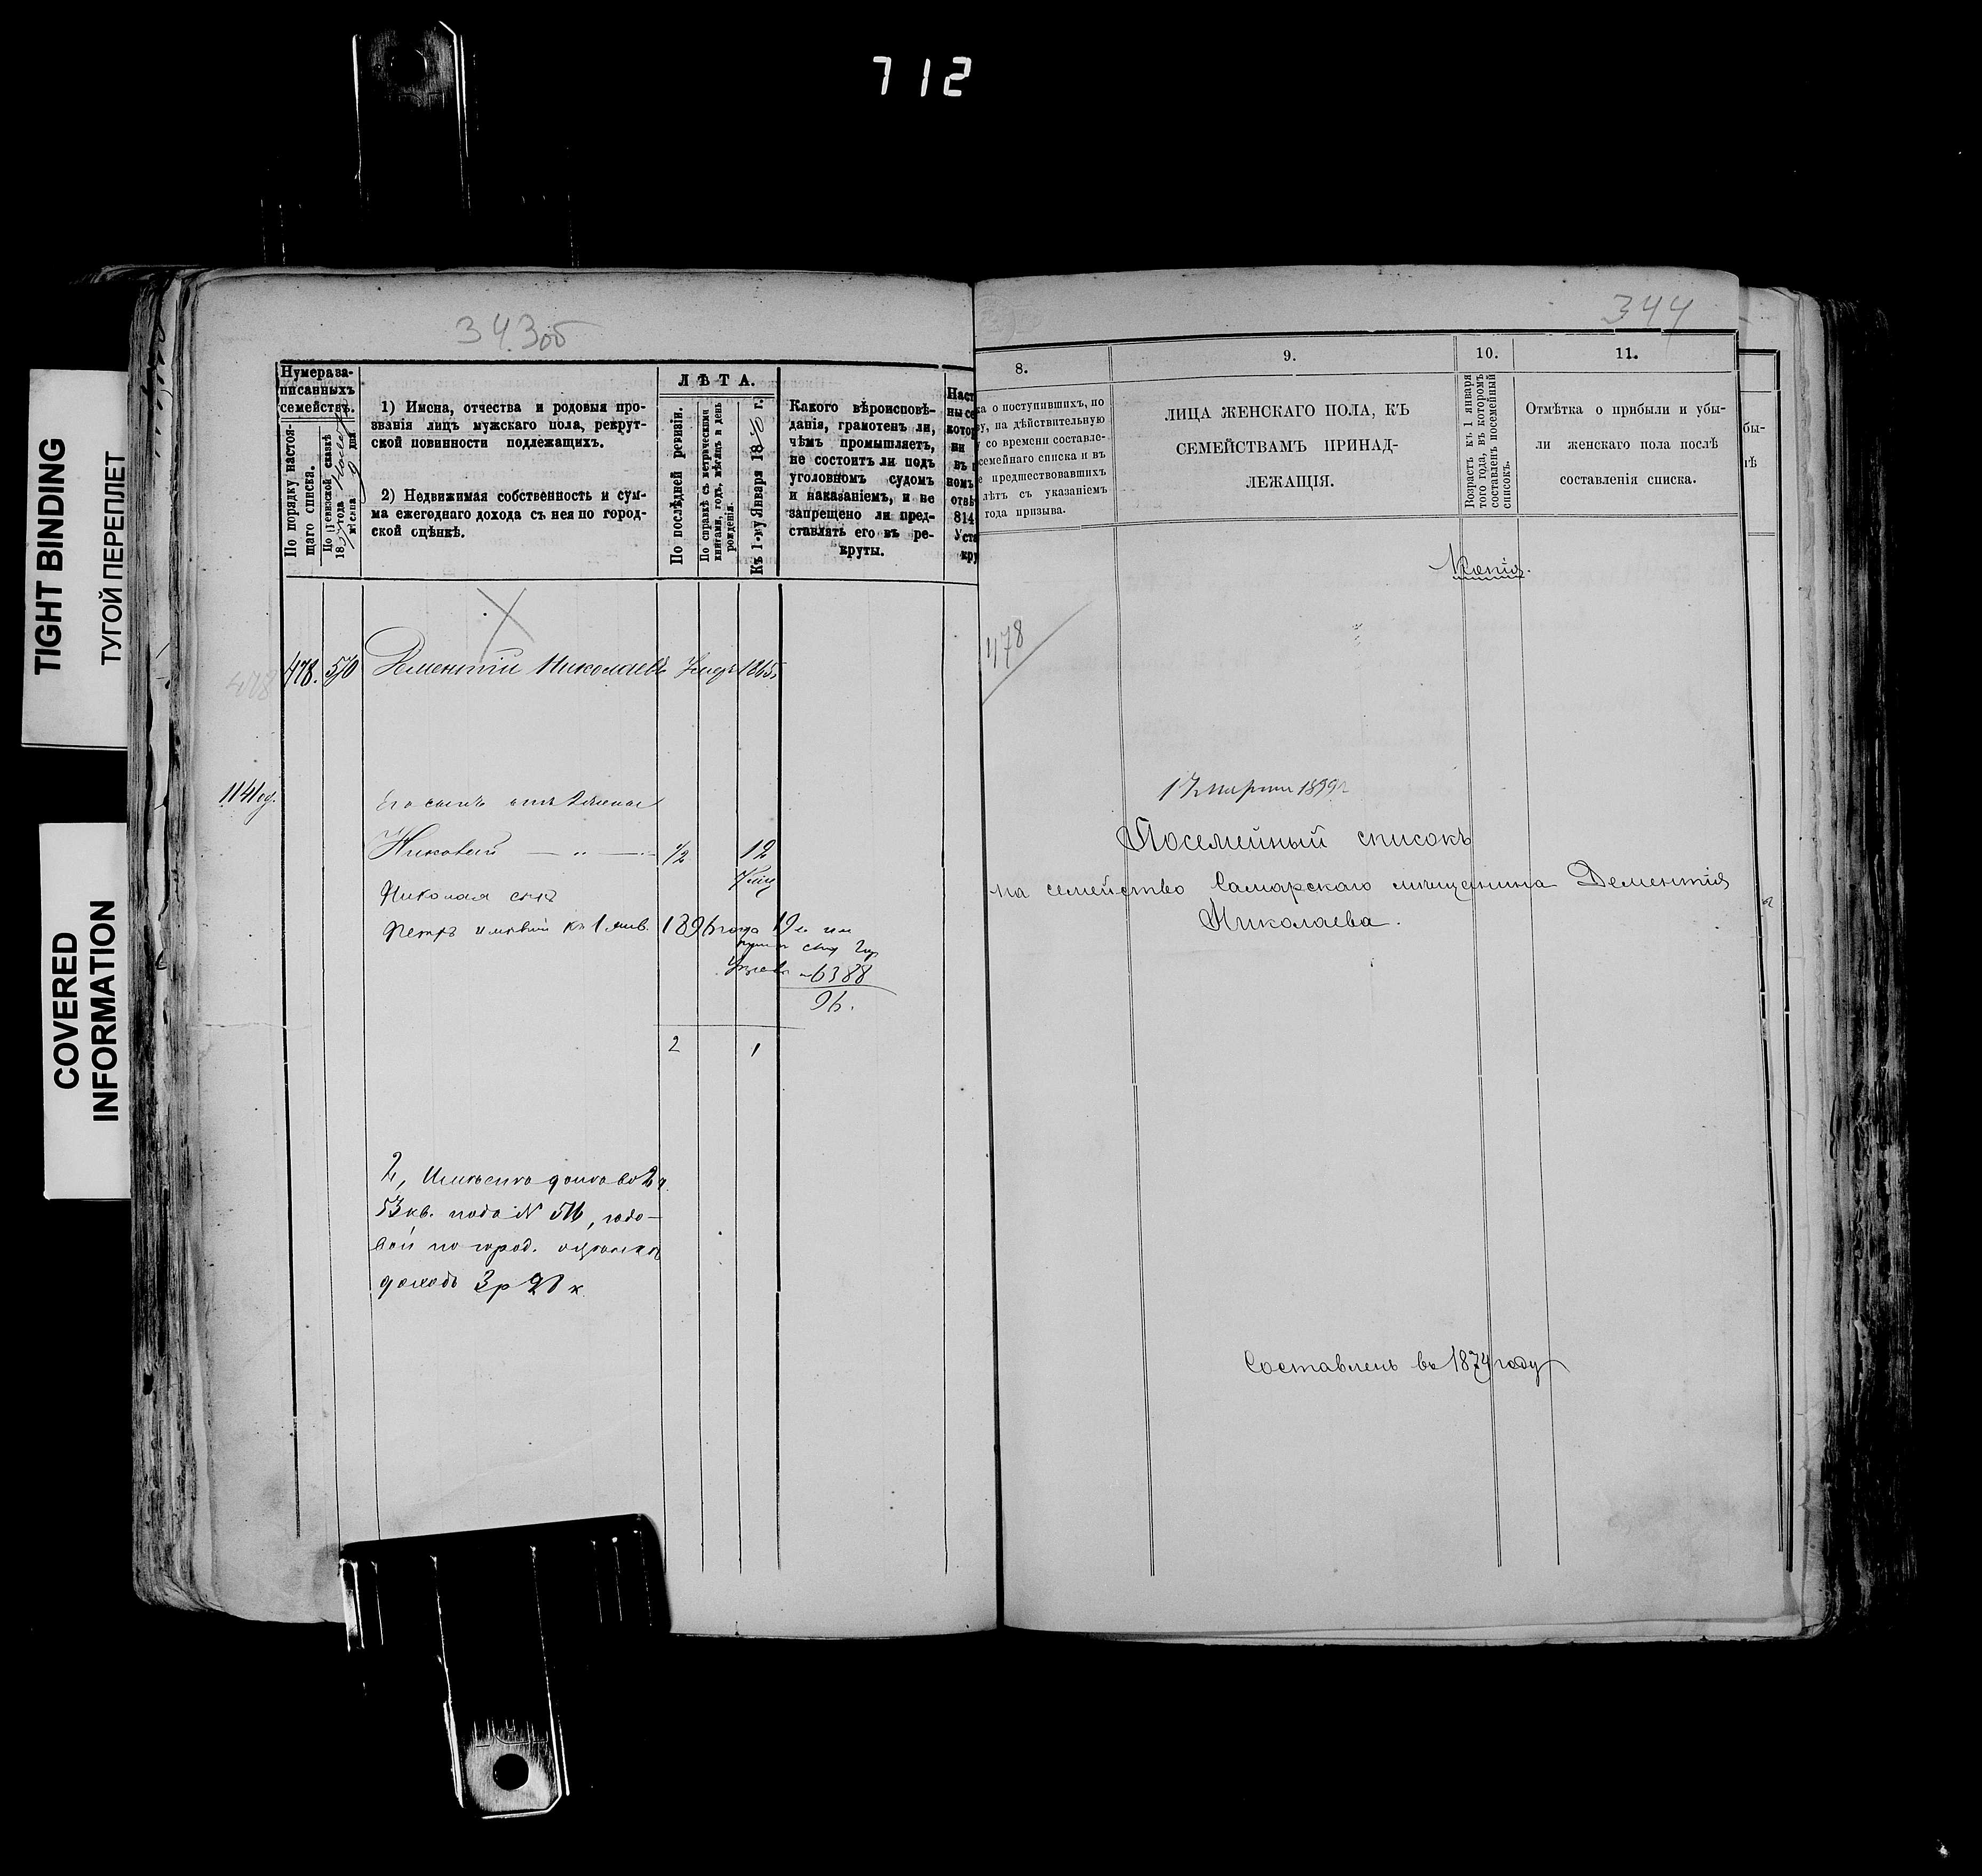 712
TIGHT BINDING
ТУГОЙ ПЕРЕПЛЕТ
COVERED
INFORMATION
343об
Нумера за-
писанныхъ
семействъ.
По порядку настоя-
щаго списка.
По ревизской сказкѣ
18 года
мѣсяца 9 дня
1) Имена, отчества и родовыя про-
званія лицъ мужскаго пола, рекрут-
ской повинности подлежащихъ.
2) Недвижимая собственность и сум-
ма ежегоднаго дохода съ нея по город-
ской оцѣнкѣ.
ЛѢТА.
По послѣдней ревизіи.
По справкѣ съ метрическими
книгами, годъ, мѣсяцъ и день
рожденія.
Къ 1-му Января 1870 г.
Какого вѣроисповѣ-
данія, грамотенъ ли,
чѣмъ промышляетъ,
не состоитъ ли подъ
уголовномъ судомъ
и наказаніемъ, и не
запрещено ли пред-
ставлять его въ ре-
круты.
478
478. 570 Дементій Николаевъ 1865
1141
Его сынъ
Николай — " — 1/2 12
Николая сынъ
Петръ имѣвшій къ 1 янв. 1896 года 19 л.
6388
96.
2 1
2,
53 кв. подъ №, годо-
вой по город. оцѣнкѣ
доходъ 3 р к.
344
8.
ка о поступившихъ, по
ру, на дѣйствительную
у со времени составле-
семейнаго списка и въ
е предшествовавшихъ
лѣтъ съ указаніемъ
года призыва.
9.
ЛИЦА ЖЕНСКАГО ПОЛА, КЪ
СЕМЕЙСТВАМЪ ПРИНАД-
ЛЕЖАЩІЯ.
10.
Возрастъ къ 1 января
того года, въ которомъ
составленъ посемейный
списокъ.
11.
Отмѣтка о прибыли и убы-
ли женскаго пола послѣ
составленія списка.
Копія.
478
17 марта 1899 г
Посемейный списокъ
на семейство Самарскаго мѣщанина Дементія
Николаева.
Составленъ въ 1874 году